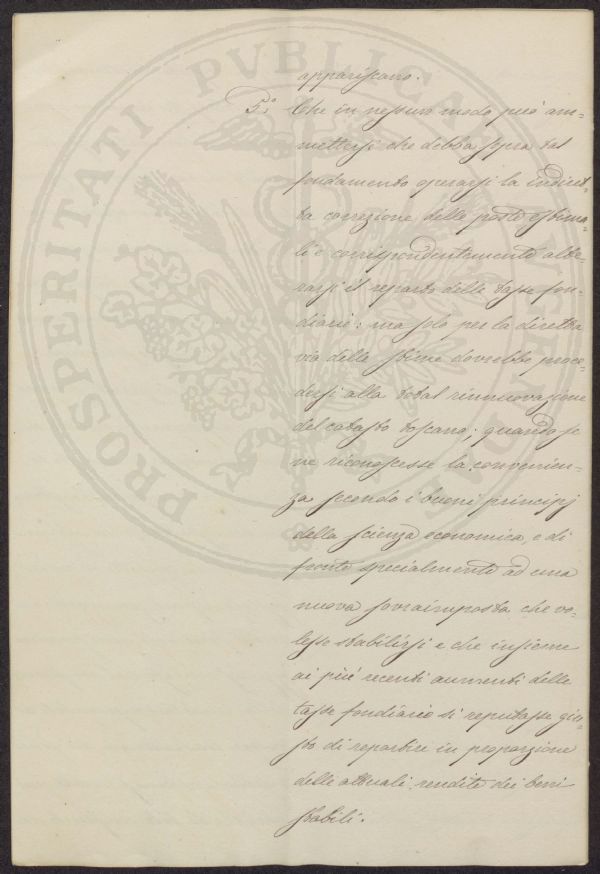 appariscano.
5.° Che in nessun modo può am=
mettersi che debba sopra tal
fondamento operarsi la indiret=
ta correzione delle poste estima=
li e corrispondentemente alte=
rarsi il reparto delle tasse fon=
diarie: ma solo per la diretta
via delle stime dovrebbe proce=
dersi alla total rinnuovazione
del catasto toscano; quando se
ne riconoscesse la convenien=
za secondo i buoni principj
della scienza economica, e di
fronte specialmente ad una
nuova sovraimposta che vo=
lesse stabilirsi e che insieme
ai più recenti aumenti delle
tasse fondiarie si reputasse giu=
sto di repartire in proporzione
delle attuali rendite dei beni
stabili.
PROSPERITATI PVBLICAE